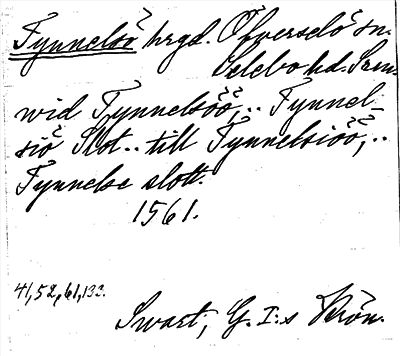 Tynnelsö hrgd. Öfverselö sn.
Selebo hd. Söm.
wid Tynnelsöö,.. Tynnel-
siö Slot.. till Tynnelsiöö,..
Tynnelse slott.
1561.
41,52,61,133.
Swart, G.I:s Krön.